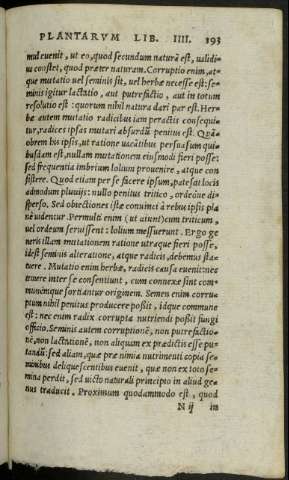 PLANTARVM LIB. IIII. 193
mul euenit, ut eo, quod secundum naturā est, ualidi-
us constet, quod præter naturam. Corruptio enim, at-
que mutatio uel seminis sit, uel herbæ necesse est: se-
minis igitur lactatio, aut putrefactio, aut in totum
resolutio est: quorum nihil natura dari par est. Her-
bæ autem mutatio radicibus iam peractis consequi-
tur, radices ipsas mutari absurdū penitus est. Quā-
obrem his ipsis, ut ratione uacātibus persuasum qui-
busdam est, nullam mutationem eiusmodi fieri posse:
sed frequentia imbrium lolium prouenire, atque con
sistere. Quod etiam per se facere ipsum, patesāt locis
admodum pluuijs: nullo penitus tritico, ordeóue di-
sperso. Sed obiectiones istæ conuinci à rebus ipsis pla
nè uidentur. Permulti enim (ut aiunt) cum triticum,
uel ordeum seruissent: lolium messuerunt. Ergo ge
neris illam mutationem ratione utraque fieri posse,
idest seminis alteratione, atque radicis, debemus sta-
tuere. Mutatio enim herbæ, radicis causa euenit: nec
tenere inter se consentiunt, cum connexe sint com-
munémque sortiantur originem. Semen enim corru-
ptum nihil penitus producere possit, idque commune
est: nec enim radix corrupta nutriendi possit fungi
officio. Seminis autem corruptionē, non putrefactio-
nē, non lactationē, non aliquam ex prædictis esse pu-
tandū: sed aliam, quæ præ nimia nutrimenti copia se-
minibus deliquescentibus euenit, quæ non ex toto se-
mina perdit, sed uicto naturali principio in aliud ge-
nus traducit. Proximum quodammodo est, quod
N ij in